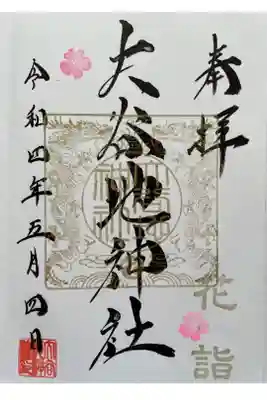 奉拝
花詣
大谷地神社
令和四年五月四日